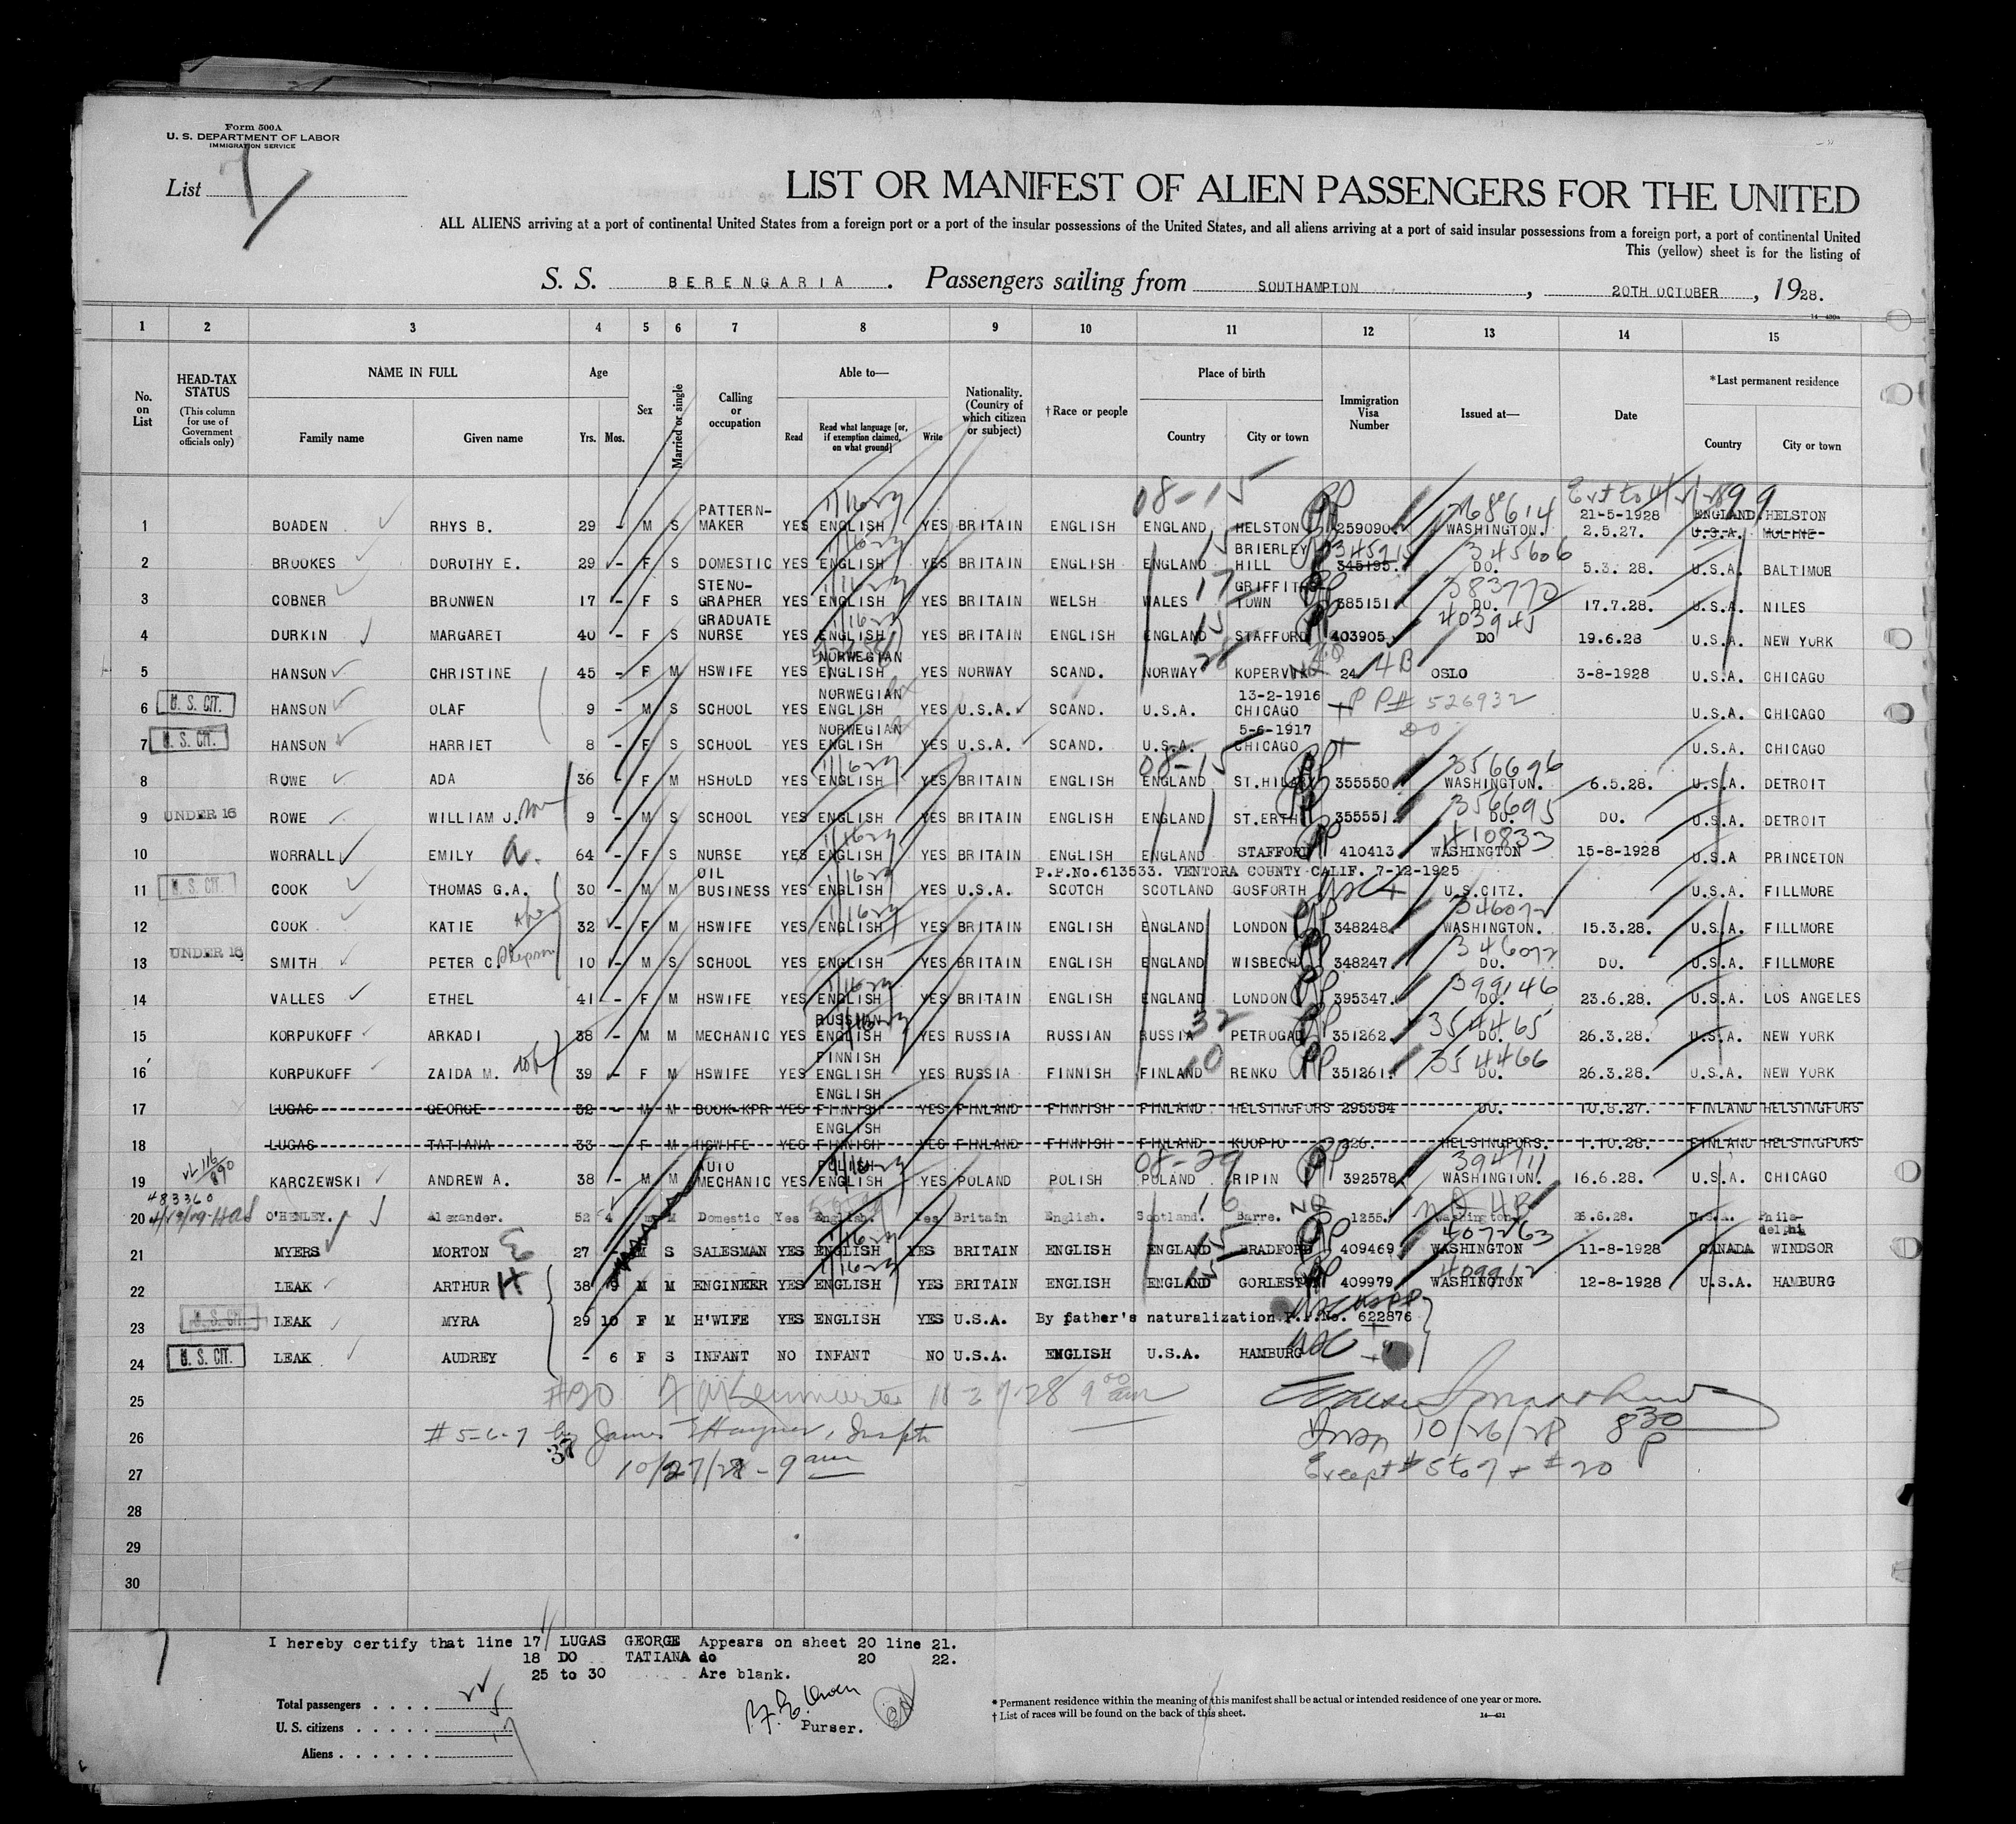 Form 500A
U. S. DEPARTMENT OF LABOR
IMMIGRATION SERVICE
List 7
LIST OR MANIFEST OF ALIEN PASSENGERS FOR THE UNITED
ALL ALIENS arriving at a port of continental United States from a foreign port or a port of the insular possessions of the United States, and all aliens arriving at a port of said insular possessions from a foreign port, a port of continental United
This (yellow) sheet is for the listing of
S. S. BERENGARIA. Passengers sailing from SOUTHAMPTON, 20TH OCTOBER, 1928.
1 2 3 4 5 6 7 8 9 10 11 12 13 14 15
No. on List
HEAD-TAX STATUS
(This column for use of Government officials only)
NAME IN FULL
Family name Given name
Age
Yrs. Mos.
Sex
Married or single
Calling or occupation
Able to—
Read
Read what language [or, if exemption claimed, on what ground]
Write
Nationality. (Country of which citizen or subject)
† Race or people
Place of birth
Country City or town
Immigration Visa Number
Issued at—
Date
*Last permanent residence
Country City or town
08-15
1 BOADEN RHYS B. 29 - M S PATTERN-MAKER YES ENGLISH YES BRITAIN ENGLISH ENGLAND HELSTON 259090 268614 WASHINGTON. 21-5-1928 2.5.27. ENGLAND HELSTON U.S.A. MOLINE
2 BROOKES DOROTHY E. 29 - F S DOMESTIC YES ENGLISH YES BRITAIN ENGLISH ENGLAND BRIERLEY HILL 345195. 345215 345606 DO. 5.3.28. U.S.A. BALTIMOR
3 COBNER BRONWEN 17 - F S STENO-GRAPHER YES ENGLISH YES BRITAIN WELSH WALES 17 GRIFFITHS TOWN 385151 383770 DO. 17.7.28. U.S.A. NILES
4 DURKIN MARGARET 40 - F S GRADUATE NURSE YES ENGLISH YES BRITAIN ENGLISH ENGLAND 15 STAFFORD 403905 403945 DO 19.6.28 U.S.A. NEW YORK
5 HANSON CHRISTINE 45 - F M HSWIFE YES NORWEGIAN ENGLISH YES NORWAY SCAND. NORWAY KOPERVIK 24 4B OSLO 3-8-1928 U.S.A. CHICAGO
U. S. CIT.
6 HANSON OLAF 9 - M S SCHOOL YES NORWEGIAN ENGLISH YES U.S.A. SCAND. U.S.A. 13-2-1916 CHICAGO PP# 526932 U.S.A. CHICAGO
U. S. CIT.
7 HANSON HARRIET 8 - F S SCHOOL YES NORWEGIAN ENGLISH YES U.S.A. SCAND. U.S.A. 5-6-1917 CHICAGO DO U.S.A. CHICAGO
08-15
8 ROWE ADA 36 - F M HSHOLD YES ENGLISH YES BRITAIN ENGLISH ENGLAND ST.HILARY 355550 356696 WASHINGTON. 6.5.28. U.S.A. DETROIT
UNDER 16
9 ROWE WILLIAM J. son 9 - M S SCHOOL YES ENGLISH YES BRITAIN ENGLISH ENGLAND ST.ERTH 355551. 356695 DO. DO. U.S.A. DETROIT
10 WORRALL EMILY a. 64 - F S NURSE YES ENGLISH YES BRITAIN ENGLISH ENGLAND STAFFORD 410413 410833 WASHINGTON 15-8-1928 U.S.A PRINCETON
P.P.No.613533. VENTORA COUNTY CALIF. 7-12-1925
U. S. CIT.
11 COOK THOMAS G.A. 30 - M M OIL BUSINESS YES ENGLISH YES U.S.A. SCOTCH SCOTLAND GOSFORTH U.S.CITZ. U.S.A. FILLMORE
12 COOK KATIE 32 - F M HSWIFE YES ENGLISH YES BRITAIN ENGLISH ENGLAND LONDON 348248. 346072 WASHINGTON. 15.3.28. U.S.A. FILLMORE
UNDER 16
13 SMITH PETER C. Stepson 10 - M S SCHOOL YES ENGLISH YES BRITAIN ENGLISH ENGLAND WISBECH 348247. 346072 DO. DO. U.S.A. FILLMORE
14 VALLES ETHEL 41 - F M HSWIFE YES ENGLISH YES BRITAIN ENGLISH ENGLAND LONDON 395347. 399146 DO. 23.6.28. U.S.A. LOS ANGELES
15 KORPUKOFF ARKADI 38 - M M MECHANIC YES RUSSIAN ENGLISH YES RUSSIA RUSSIAN RUSSIA 32 PETROGAD 351262. 354465 DO. 26.3.28. U.S.A. NEW YORK
16 KORPUKOFF ZAIDA M. 39 - F M HSWIFE YES FINNISH ENGLISH YES RUSSIA FINNISH FINLAND 10 RENKO 351261. 354466 DO. 26.3.28. U.S.A. NEW YORK
17 LUGAS GEORGE 32 - M M BOOK-KPR YES ENGLISH FINNISH YES FINLAND FINNISH FINLAND HELSINGFORS 295554 DO. 10.8.27. FINLAND HELSINGFORS
18 LUGAS TATIANA 33 - F M HSWIFE YES ENGLISH FINNISH YES FINLAND FINNISH FINLAND KUOPIO 326. HELSINGFORS. 1.10.28. FINLAND HELSINGFORS
08-29
19 KARCZEWSKI ANDREW A. 38 - M M AUTO MECHANIC YES POLISH ENGLISH YES POLAND POLISH POLAND RIPIN 392578 394711 WASHINGTON. 16.6.28. U.S.A. CHICAGO
483360
20 O'HENLEY. Alexander. 52 4 M M Domestic Yes English. Yes Britain English. Scotland. 16 Barre. 1255. 4B Washington 26.6.28. U.S.A. Phila-delphi
21 MYERS MORTON 27 - M S SALESMAN YES ENGLISH YES BRITAIN ENGLISH ENGLAND 15 BRADFORD 409469 407263 WASHINGTON 11-8-1928 CANADA WINDSOR
22 LEAK ARTHUR H 38 9 M M ENGINEER YES ENGLISH YES BRITAIN ENGLISH ENGLAND 15 GORLESTON 409979 409912 WASHINGTON 12-8-1928 U.S.A. HAMBURG
U. S. CIT.
23 LEAK MYRA 29 10 F M H'WIFE YES ENGLISH YES U.S.A. By father's naturalization.P.P.No. 622876
U. S. CIT.
24 LEAK AUDREY - 6 F S INFANT NO INFANT NO U.S.A. ENGLISH U.S.A. HAMBURG
25 #20
26 # 5-6-7 by James 10/26/28 830 P
27 10/27/28 - 9 am Except # 5 to 7 + # 20
28
29
30
I hereby certify that line 17 LUGAS GEORGE Appears on sheet 20 line 21.
18 DO TATIANA do 20 22.
25 to 30 Are blank.
Total passengers . . . . 22
U. S. citizens . . . . . 5
Aliens . . . . . . 17
Purser.
* Permanent residence within the meaning of this manifest shall be actual or intended residence of one year or more.
† List of races will be found on the back of this sheet.
14—431